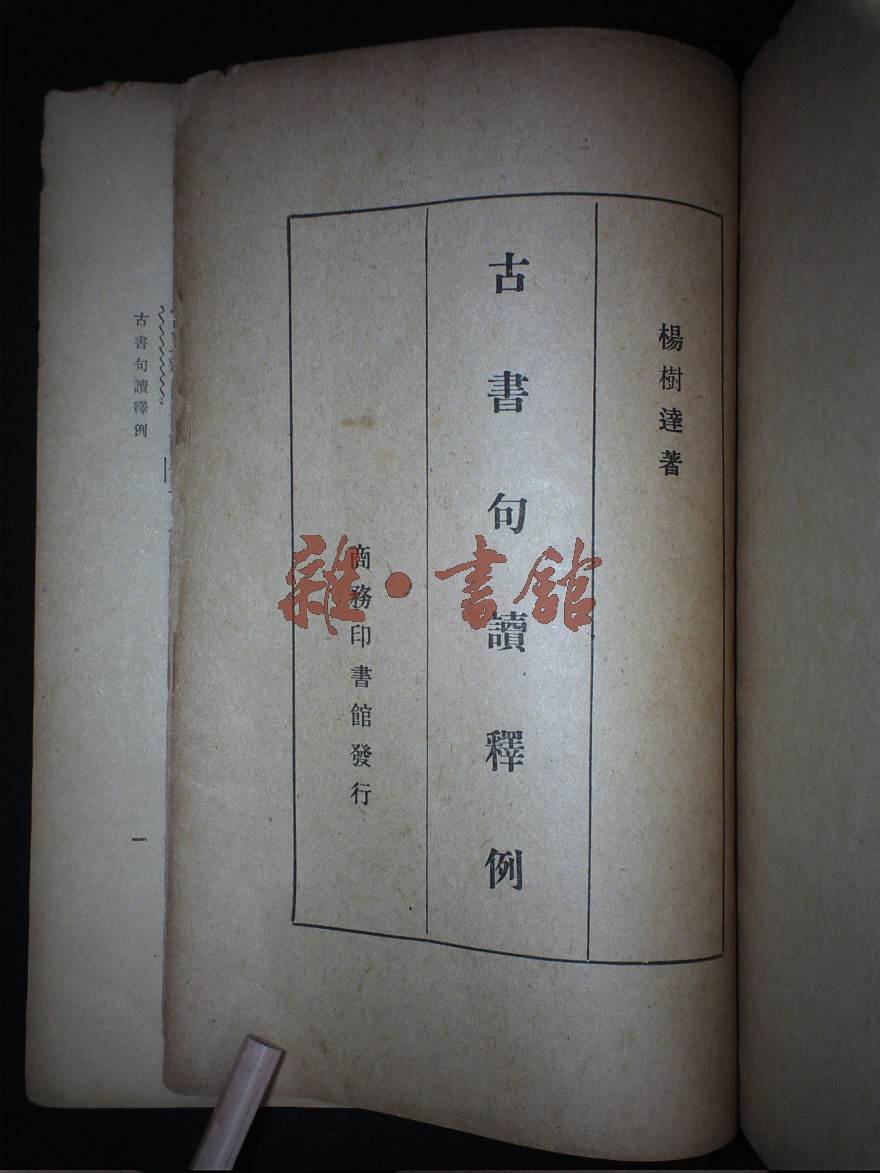 楊樹達著
古書句讀釋例
商務印書館發行
雜·書館
古書句讀釋例
一